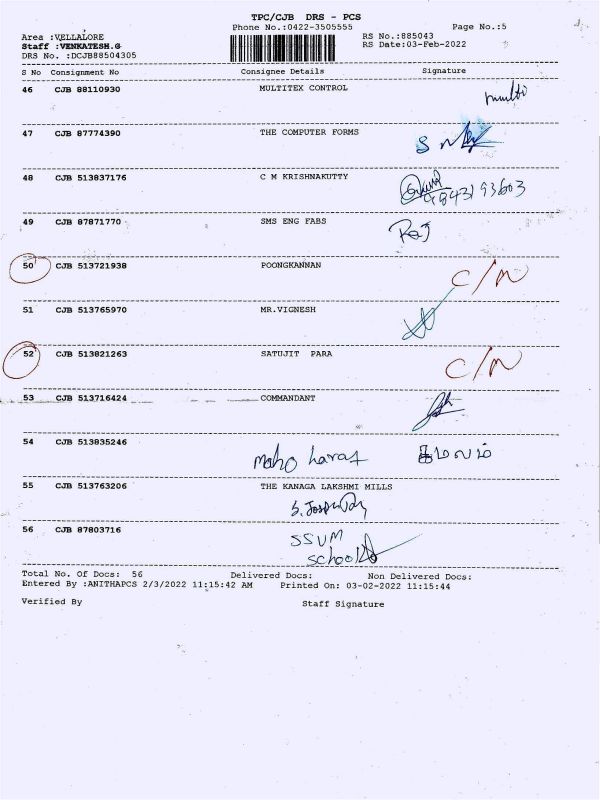 TPC/CJB DRS - PCS
Phone No.:0422-3505555 Page No.:5
Area :VELLALORE RS No.:885043
Staff :VENKATESH.G RS Date:03-Feb-2022
DRS No. :DCJB88504305
S No Consignment No Consignee Details Signature
46 CJB 88110930 MULTITEX CONTROL multi
47 CJB 87774390 THE COMPUTER FORMS
48 CJB 513837176 C M KRISHNAKUTTY 9843193603
49 CJB 87871770 SMS ENG FABS Raj
50 CJB 513721938 POONGKANNAN C/N
51 CJB 513765970 MR.VIGNESH
52 CJB 513821263 SATUJIT PARA C/N
53 CJB 513716424 COMMANDANT
54 CJB 513835246
55 CJB 513763206 THE KANAGA LAKSHMI MILLS
56 CJB 87803716 SSVM
School
Total No. Of Docs: 56 Delivered Docs: Non Delivered Docs:
Entered By :ANITHAPCS 2/3/2022 11:15:42 AM Printed On: 03-02-2022 11:15:44
Verified By Staff Signature